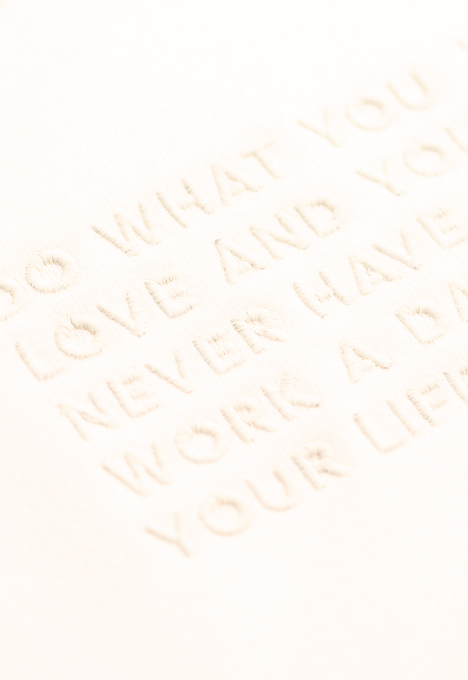 DO WHAT YOU
LOVE AND YOU
NEVER HAVE
WORK A DA
YOUR LIFE